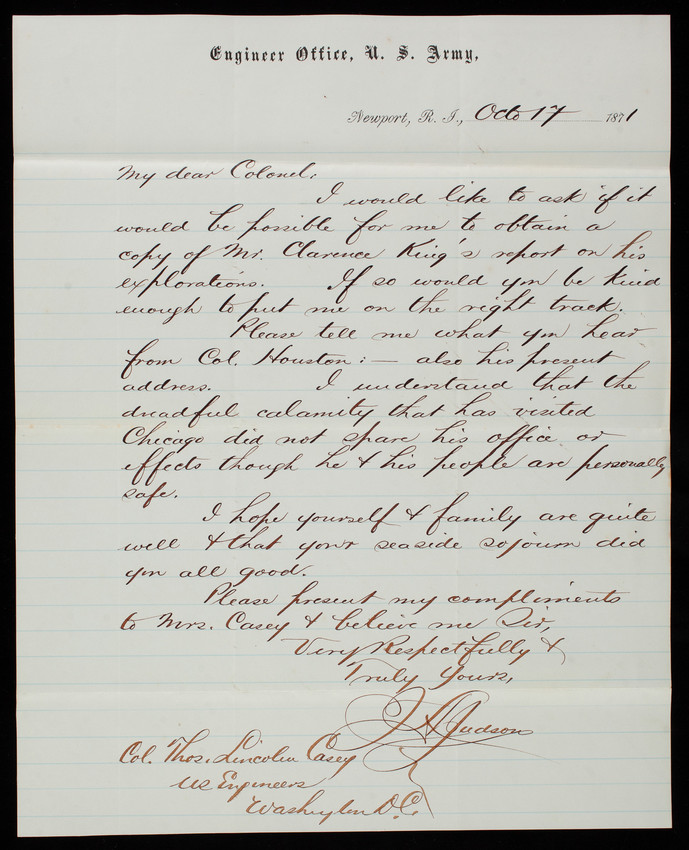 Engineer Office, U. S. Army,
Newport, R. I., Octo 17 1871
My dear Colonel:
I would like to ask if it
would be possible for me to obtain a
copy of Mr. Clarence King's report on his
explorations. If so would you be kind
enough to put me on the right track.
Please tell me what you hear
from Col. Houston: — also his present
address. I understand that the
dreadful calamity that has visited
Chicago did not spare his office or
effects though he & his people are personally
safe.
I hope yourself & family are quite
well & that your seaside sojourn did
you all good.
Please present my compliments
to Mrs. Casey & believe me Sir,
Very Respectfully &
Truly Yours,
Judson
Col. Thos. Lincoln Casey
US Engineers
Washington D.C.